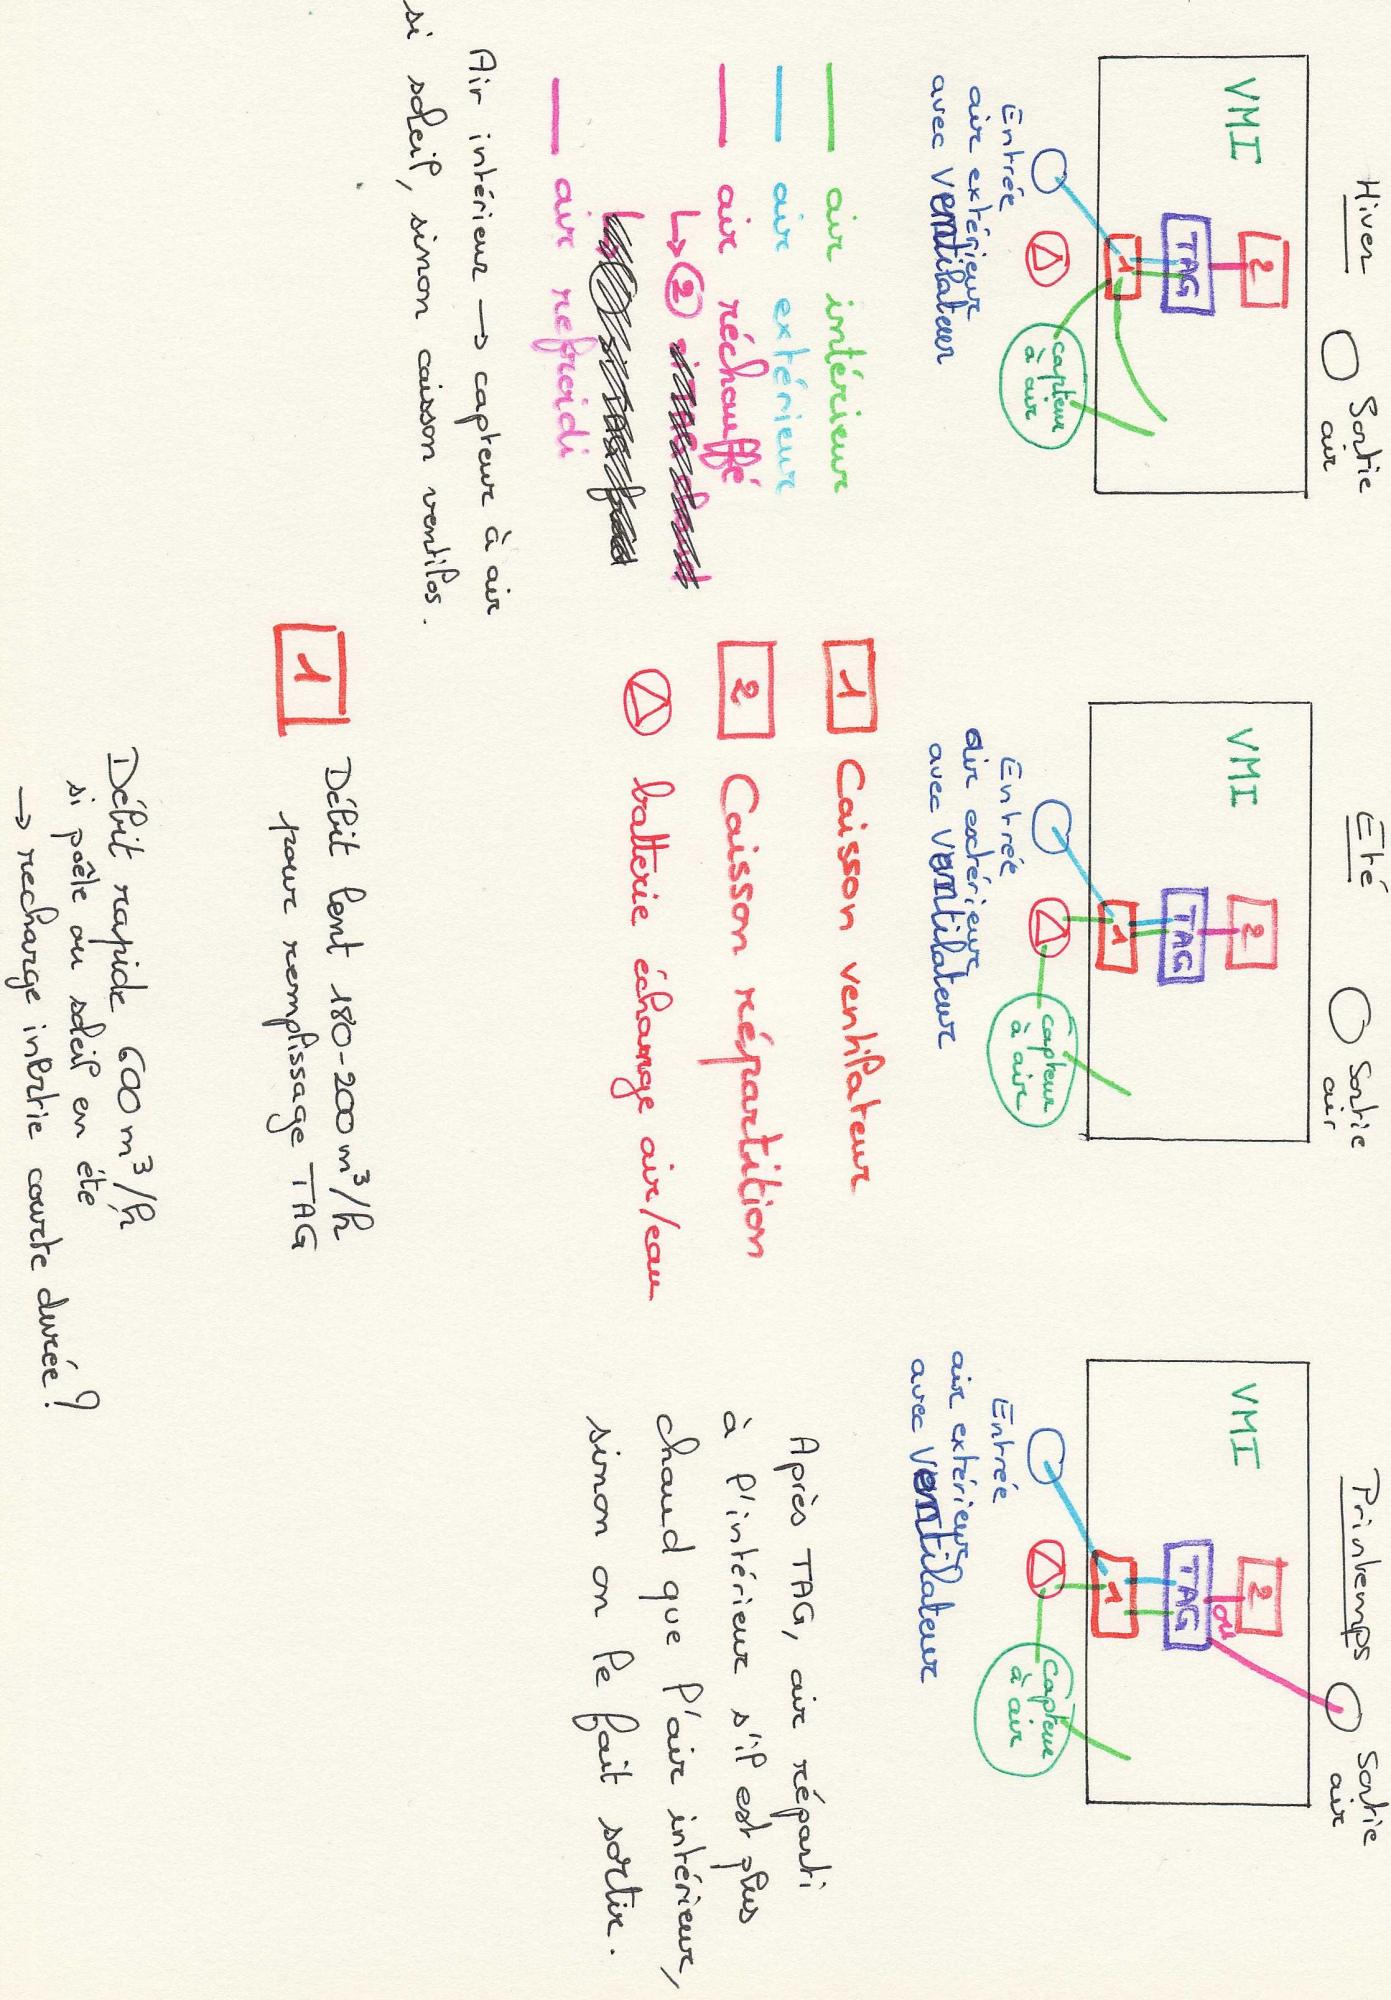 Hiver
Sortie
air
VMI
2
TAG
1
Entrée
air extérieur
avec ventilateur
capteur
à air
Eté
Sortie
air
VMI
2
TAG
1
Entrée
air extérieur
avec ventilateur
capteur
à air
Printemps
Sortie
air
VMI
2
ou
TAG
1
Entrée
air extérieur
avec ventilateur
Capteur
à air
air intérieur
air extérieur
air réchauffé
↳ 2
air refroidi
Air intérieur → capteur à air
si soleil, sinon caisson ventilos.
1 Caisson ventilateur
2 Caisson répartition
batterie échange air/eau
1 Débit lent 180-200 m³/h
pour remplissage TAG
Débit rapide 600 m³/h
si poêle ou soleil en été
→ recharge inertie courte durée?
Après TAG, air réparti
à l'intérieur s'il est plus
chaud que l'air intérieur,
sinon on le fait sortir.